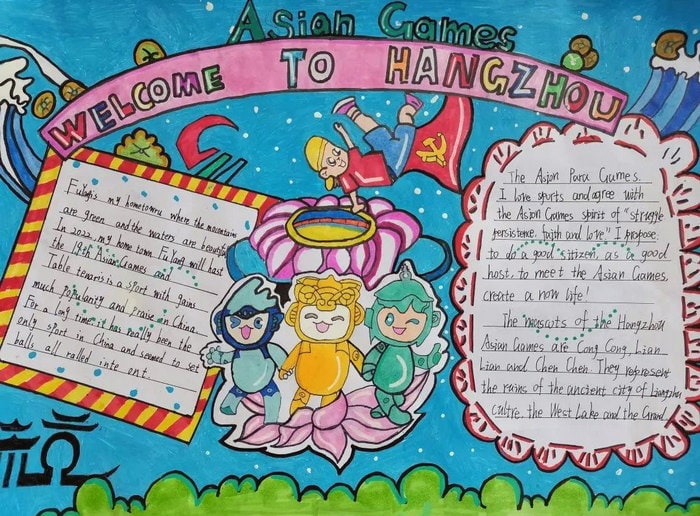 Asian Games
WELCOME TO HANGZHOU
Fuyang's my hometowru where the mountains
are green and the waters are beautiful
In 2022, my home town Fuyang will host
the 19th Asian Games and
Table tenaris a sport with gains
much popularity and praise on China.
For a long time, it has really been the
only sport in China and seemed to set
balls all ralled inte ont.
The Asian Para Games.
I love sports and agree with
the Asian Games spirit of "struggle
persistence, faith and love" I propose
to do a good sitizen, as a good
host, to meet the Asian Games
create a now life!
The mascots of the Hangzhou
Asian Games are Cong Cong, Lian
Lian and Chen Chen. They represent
the ruins of the ancient city of Liangzhu
cultre, the West Lake and the Grand